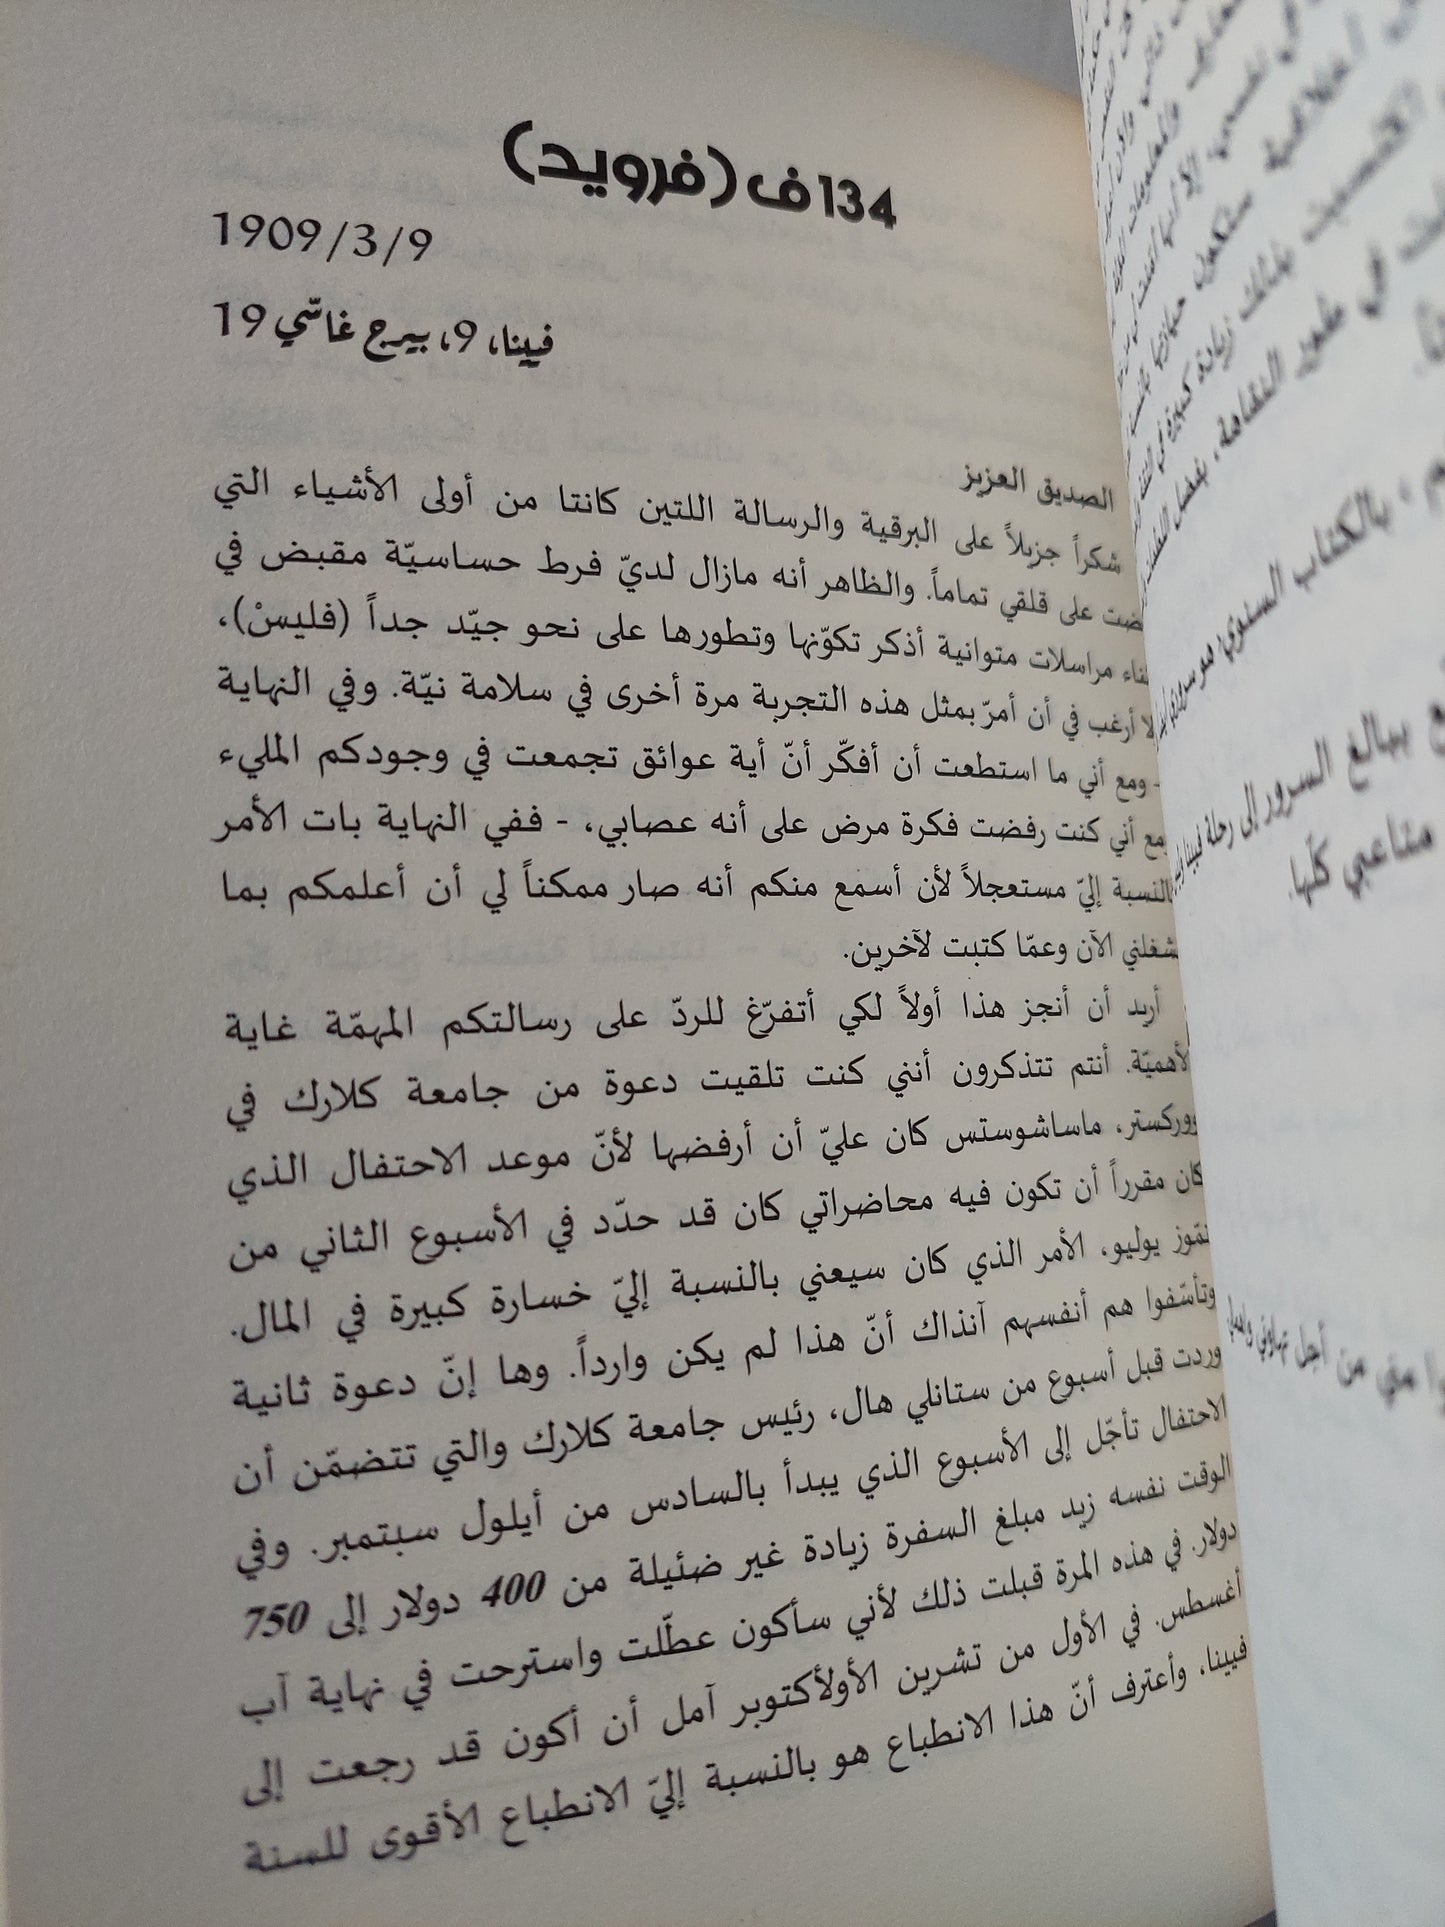 134 ف (فرويد)
1909/3/9
فيينا، 9، بيرج غاسّي 19
الصديق العزيز
شكراً جزيلاً على البرقية والرسالة اللتين كانتا من أولى الأشياء التي
على قلقي تماماً. والظاهر أنه مازال لديّ فرط حساسيّة مقبض في
مراسلات متوانية أذكر تكوّنها وتطورها على نحو جيّد جداً (فليسْ)،
لا أرغب في أن أمرّ بمثل هذه التجربة مرة أخرى في سلامة نيّة. وفي النهاية
- ومع أني ما استطعت أن أفكّر أنّ أية عوائق تجمعت في وجودكم المليء
ومع أني كنت رفضت فكرة مرض على أنه عصابي، - ففي النهاية بات الأمر
بالنسبة إليّ مستعجلاً لأن أسمع منكم أنه صار ممكناً لي أن أعلمكم بما
يشغلني الآن وعمّا كتبت لآخرين.
أريد أن أنجز هذا أولاً لكي أتفرّغ للردّ على رسالتكم المهمّة غاية
الأهميّة. أنتم تتذكرون أنني كنت تلقيت دعوة من جامعة كلارك في
ووركستر، ماساشوستس كان عليّ أن أرفضها لأنّ موعد الاحتفال الذي
كان مقرراً أن تكون فيه محاضراتي كان قد حدّد في الأسبوع الثاني من
تمّوز يوليو، الأمر الذي كان سيعني بالنسبة إليّ خسارة كبيرة في المال.
وتأسّفوا هم أنفسهم آنذاك أنّ هذا لم يكن وارداً. وها إنّ دعوة ثانية
وردت قبل أسبوع من ستانلي هال، رئيس جامعة كلارك والتي تتضمّن أن
الاحتفال تأجّل إلى الأسبوع الذي يبدأ بالسادس من أيلول سبتمبر. وفي
الوقت نفسه زيد مبلغ السفرة زيادة غير ضئيلة من 400 دولار إلى 750
دولار. في هذه المرة قبلت ذلك لأني سأكون عطّلت واسترحت في نهاية آب
أغسطس. في الأول من تشرين الأولأكتوبر آمل أن أكون قد رجعت إلى
فيينا، وأعترف أنّ هذا الانطباع هو بالنسبة إليّ الانطباع الأقوى للسنة
في طور النقاهة، بفضل
بالكتاب السنوي،
ببالغ السرور إلى رحلة فيينا
متاعبي كلّها.
مني من أجل تهاوني